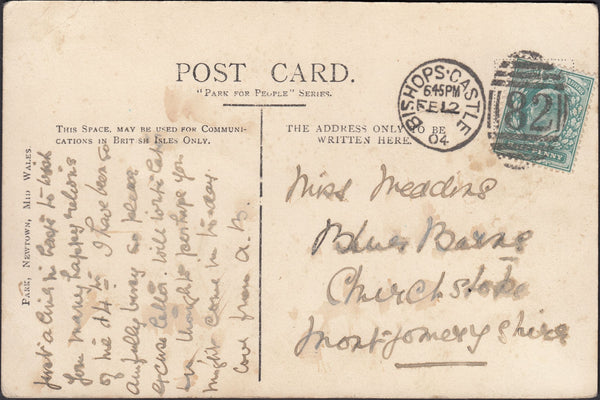 POST CARD.
"PARK FOR PEOPLE" SERIES.
THIS SPACE, MAY BE USED FOR COMMUNI-
CATIONS IN BRITISH ISLES ONLY.
THE ADDRESS ONLY TO BE
WRITTEN HERE.
BISHOPS·CASTLE
6.45PM
FE 12
04
82
PARK, NEWTOWN, MID WALES.
Just a line in haste to wish
you many happy returns
of the 14th I have been so
awfully busy so please
excuse letter. Will write later
on thought perhaps you
might come in to-day
love from A.B.
Miss Meddins
Blue Barns
Churchstoke
Montgomeryshire